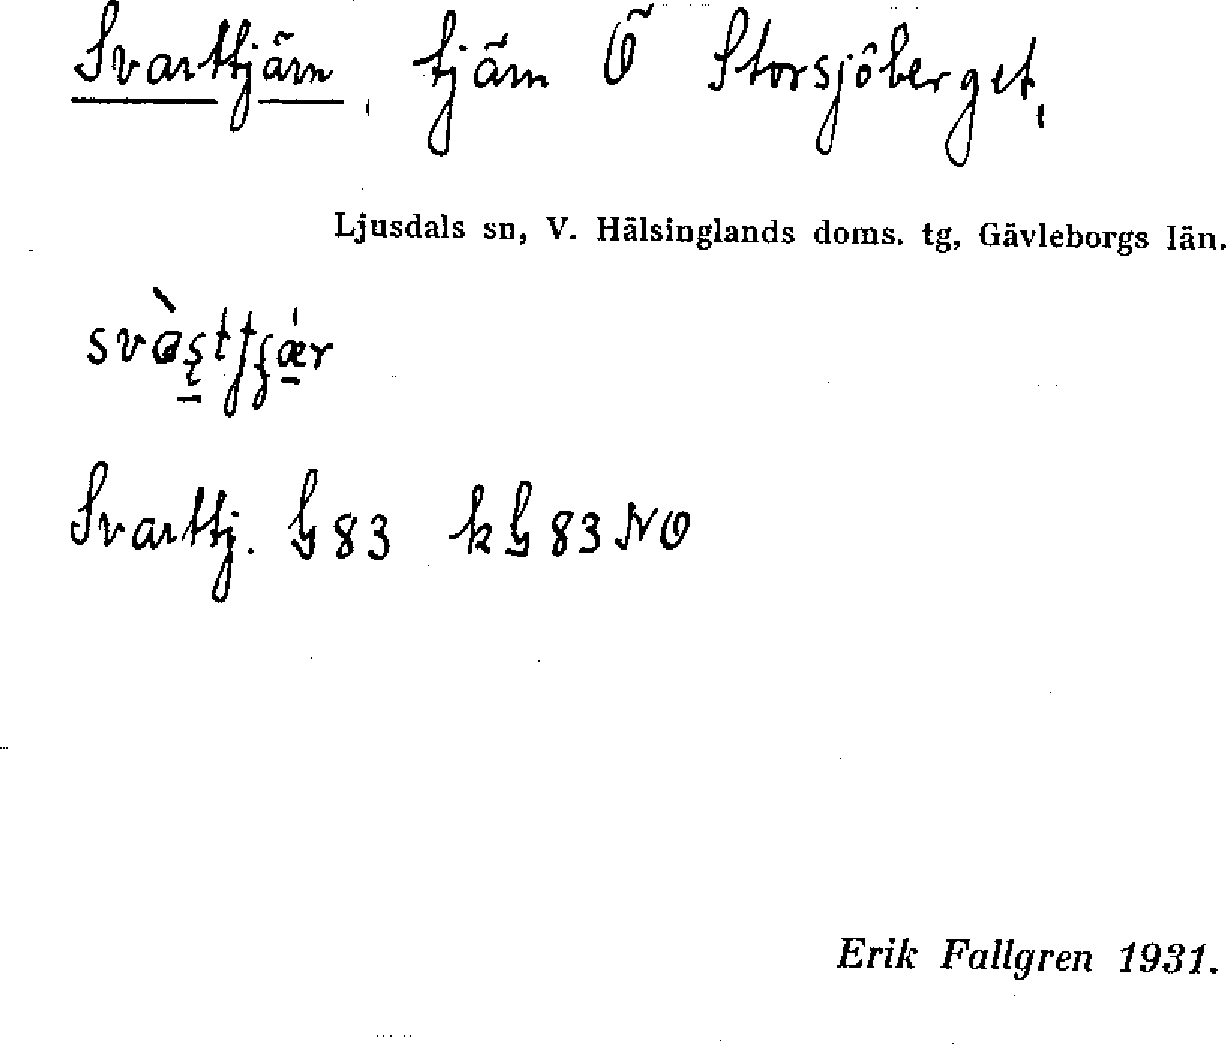 Svarttjärn, tjärn Ö Storsjöberget,
Ljusdals sn, V. Hälsinglands doms. tg, Gävleborgs län.
Svarttj. G 83 k G 83 NO
Erik Fallgren 1931.